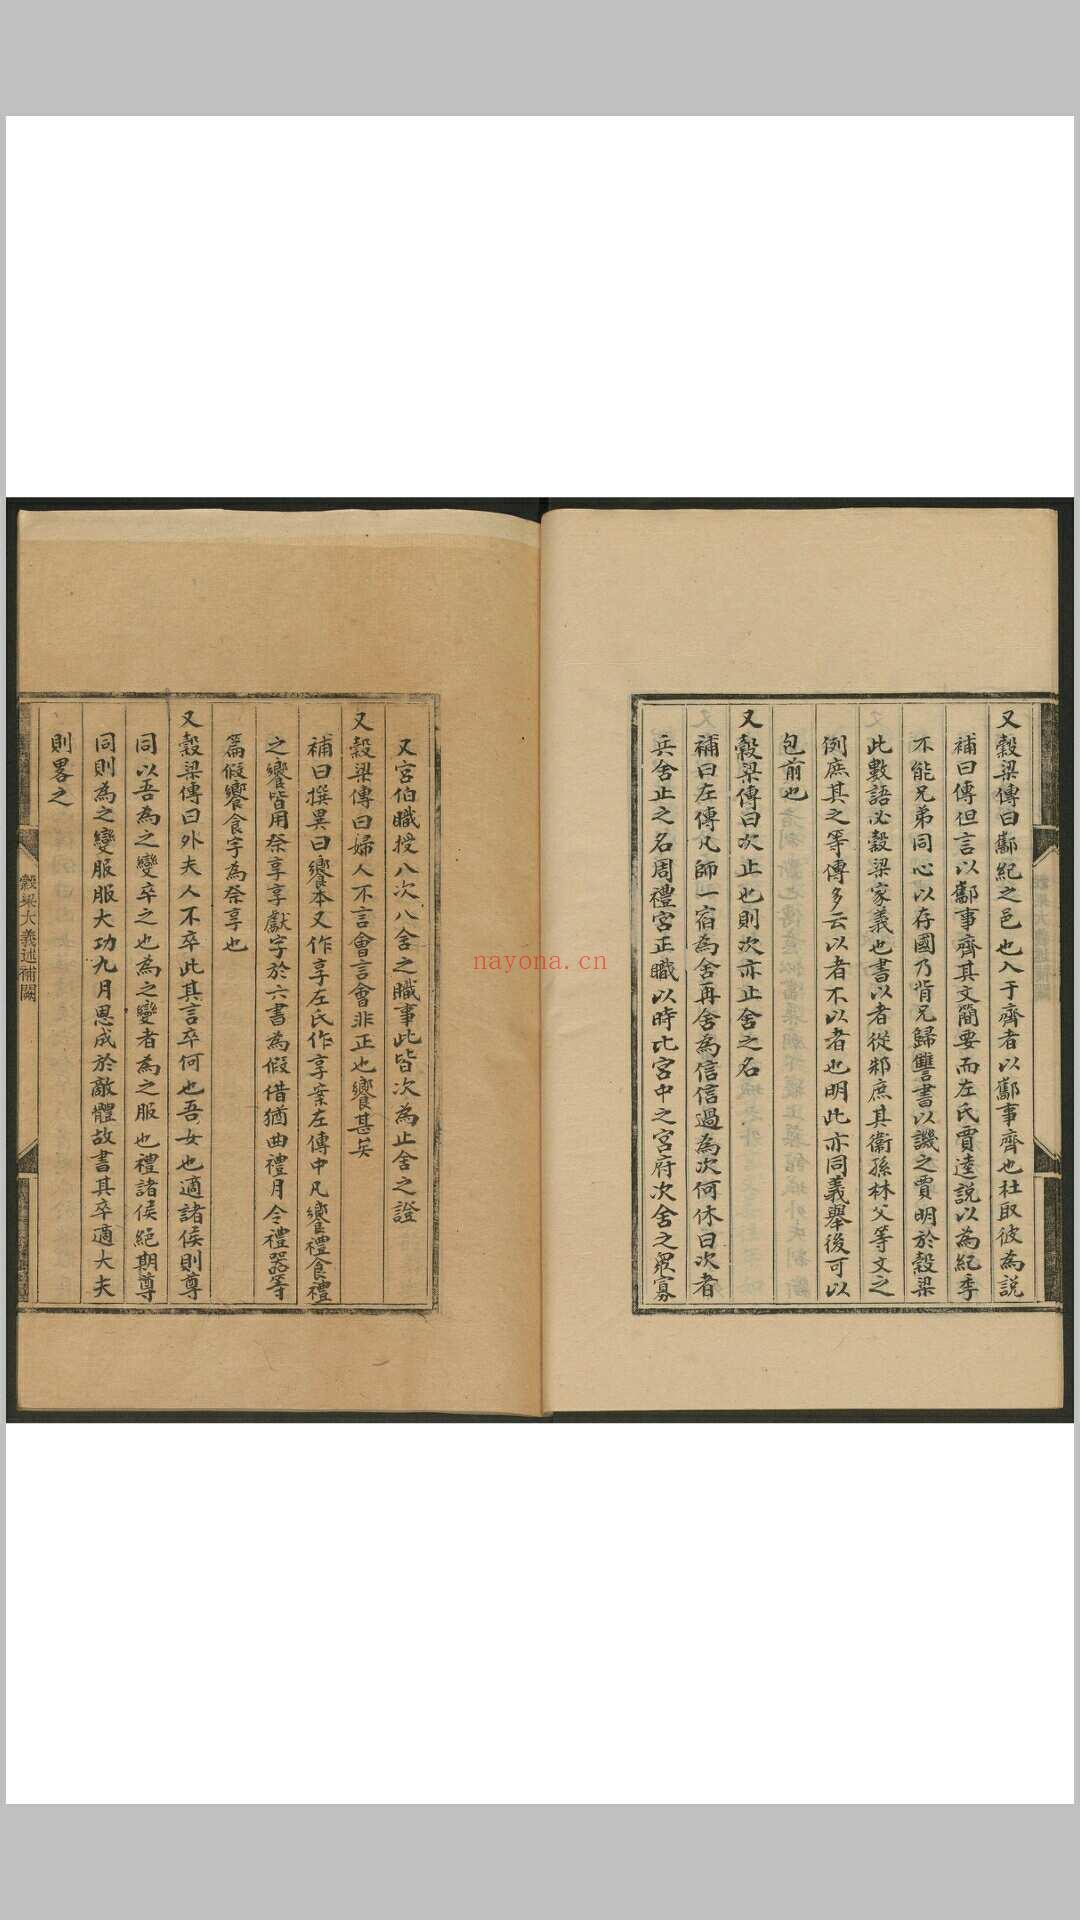 又穀梁傳曰酅紀之邑也入于齊者以酅事齊也杜取彼為說
補曰傳但言以酅事齊其文簡要而左氏賈逵說以為紀季
不能兄弟同心以存國乃背兄歸讐書以譏之賈明於穀梁
此數語必穀梁家義也書以者從邾庶其衞孫林父等文之
例庶其之等傳多云以者不以者也明此亦同義舉後可以
包前也
又穀梁傳曰次止也則次亦止舍之名
補曰左傳凡師一宿為舍再舍為信信過為次何休曰次者
兵舍止之名周禮宮正職以時比宮中之官府次舍之眾寡
又宮伯職授八次八舍之職事此皆次為止舍之證
又穀梁傳曰婦人不言會言會非正也饗甚矣
補曰撰異曰饗本又作享左氏作享案左傳中凡饗禮食禮
之饗皆用祭享享獻字於六書為假借猶曲禮月令禮器等
篇假饗食字為祭享也
又穀梁傳曰外夫人不卒此其言卒何也吾女也適諸侯則尊
同以吾為之變卒之也為之變者為之服也禮諸侯絕期尊
同則為之變服服大功九月恩成於敵體故書其卒適大夫
則畧之
穀梁大義述補闕
nayona.cn